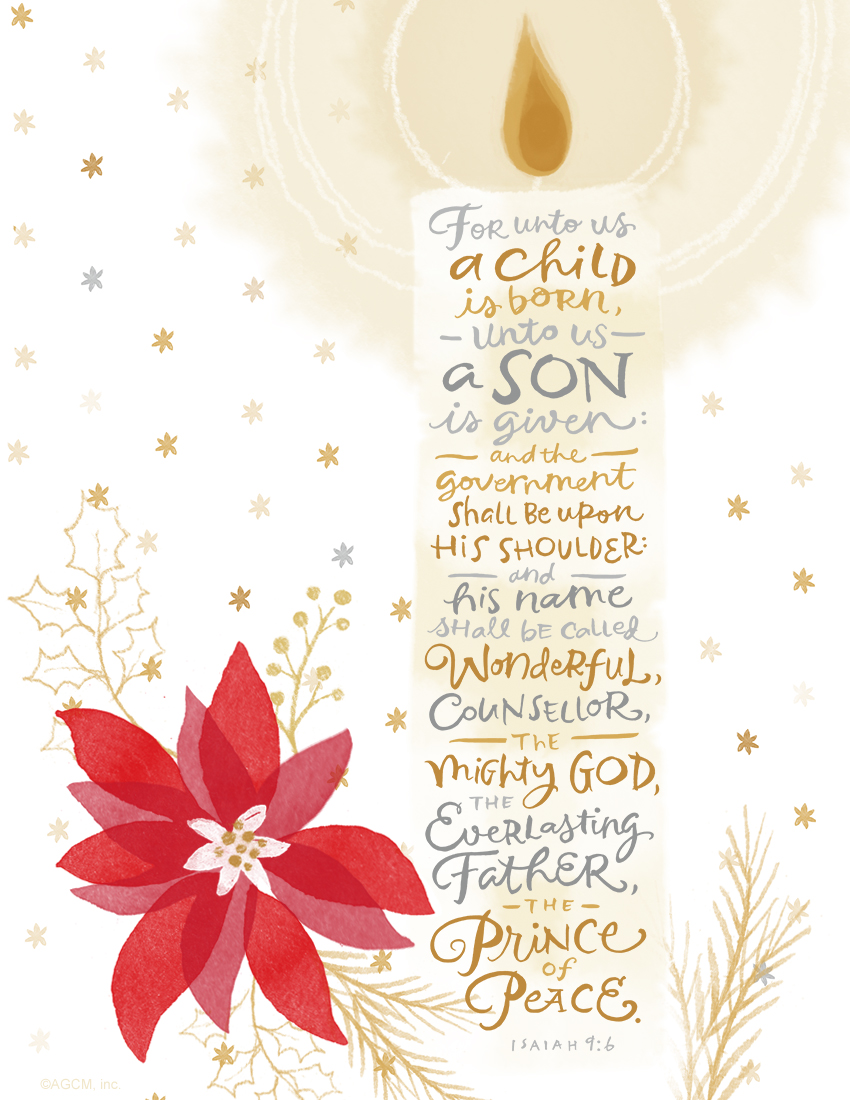 For unto us
a Child
is born,
unto us
a SON
is given:
and the
government
shall Be upon
HiS SHOULDER:
and
his name
shall be called
Wonderful,
Counsellor,
The
mighty GOD,
THE
Everlasting
Father,
THE
Prince
of
Peace.
ISAIAH 9:6
©AGCM, inc.